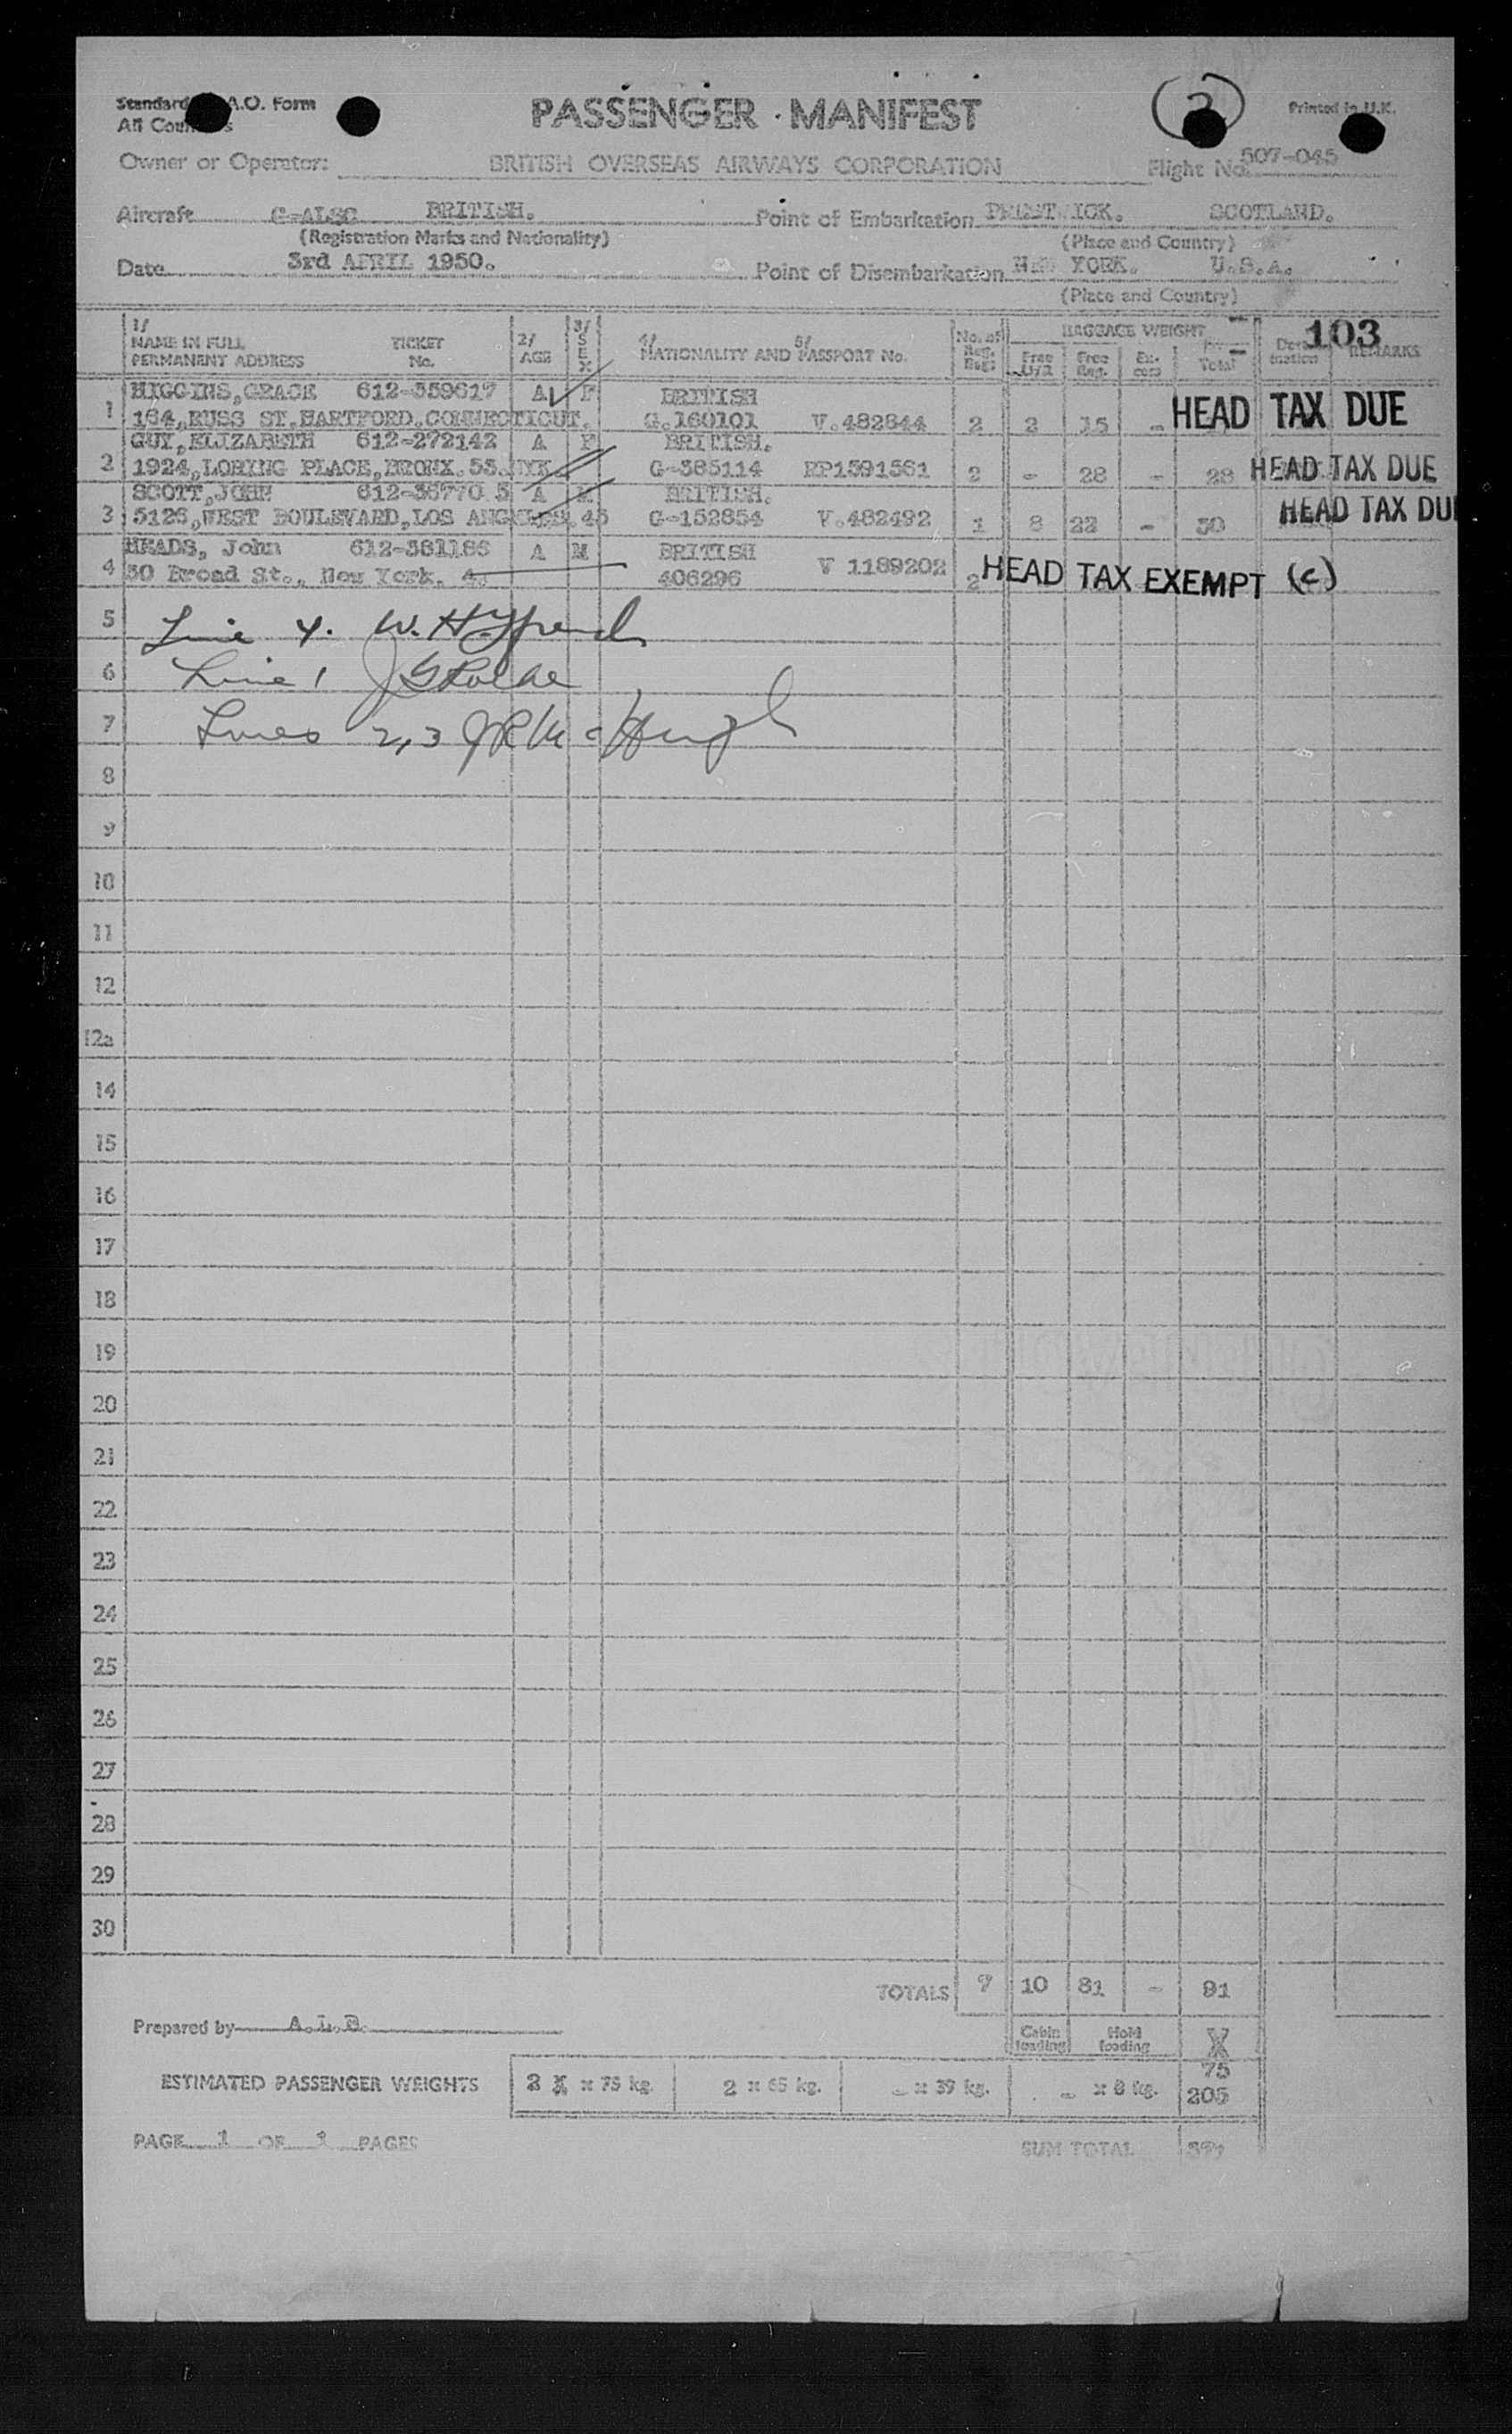 Standard A.O. Form
PASSENGER MANIFEST
(2)
Printed in U.K.
All
Owner or Operator: BRITISH OVERSEAS AIRWAYS CORPORATION Flight No. 507-045
Aircraft G-ALSC BRITISH. Point of Embarkation PRESTWICK. SCOTLAND.
(Registration Marks and Nationality) (Place and Country)
Date 3rd APRIL 1950. Point of Disembarkation NEW YORK. U.S.A.
(Place and Country)
103
1/ NAME IN FULL PERMANENT ADDRESS TICKET No. 2/ AGE 3/ SEX 4/ 5/ NATIONALITY AND PASSPORT No. No. of BAGGAGE WEIGHT Free Free Reg. Ex-cess Total REMARKS
HIGGINS,GRACE 612-359617 A F BRITISH
1 164,RUSS ST.HARTFORD.CONNECTICUT. G.160101 V.482844 2 2 15 - HEAD TAX DUE
GUY,ELIZABETH 612-272142 A F BRITISH.
2 1924,LORING PLACE,BRONX.53. G-385114 RP1591561 2 - 28 - 28 HEAD TAX DUE
SCOTT,JOHN 612-36770 5 A M BRITISH.
3 5126,WEST BOULEVARD,LOS ANGELES.43 G-152854 V.482492 1 8 22 - 30 HEAD TAX DU
HEADS, John 612-381186 A M BRITISH
4 30 Broad St., New York. 4. 406296 V 1189202 2 HEAD TAX EXEMPT (c)
5 Line 4. W.
6 Line 1
7 Lines 2,3 JR McHugh
8
9
10
11
12
12a
14
15
16
17
18
19
20
21
22
23
24
25
26
27
28
29
30
TOTALS 7 10 81 - 91
Prepared by A.L.B.
Cabin loading Hold loading
75
ESTIMATED PASSENGER WEIGHTS 2 x 75 kg. 2 x 65 kg. - x 39 kg. - x 8 kg. 205
PAGE 1 OF 1 PAGES SUM TOTAL